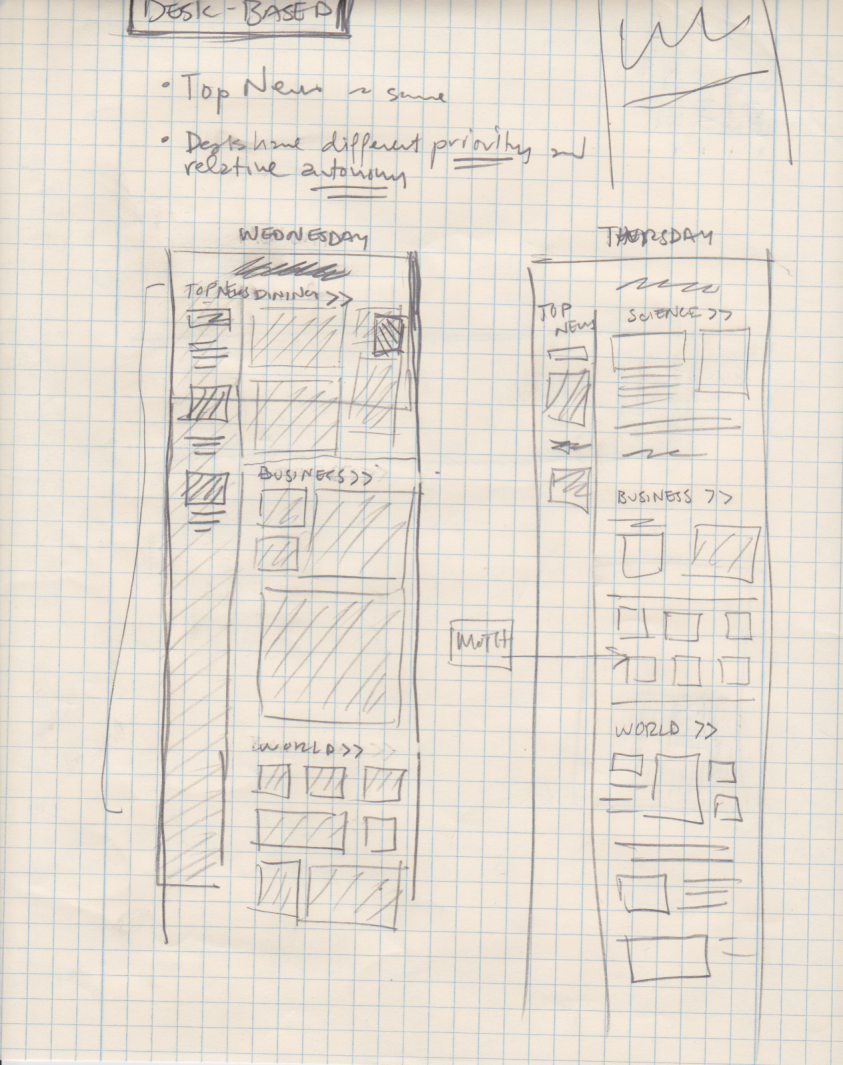 DESK-BASED
• Top News ~ same
• Desks have different priority and
relative autonomy
WEDNESDAY
TOP NEWS DINING >>
BUSINESS >>
WORLD >>
THURSDAY
TOP
NEWS
SCIENCE >>
BUSINESS >>
MOTH
WORLD >>